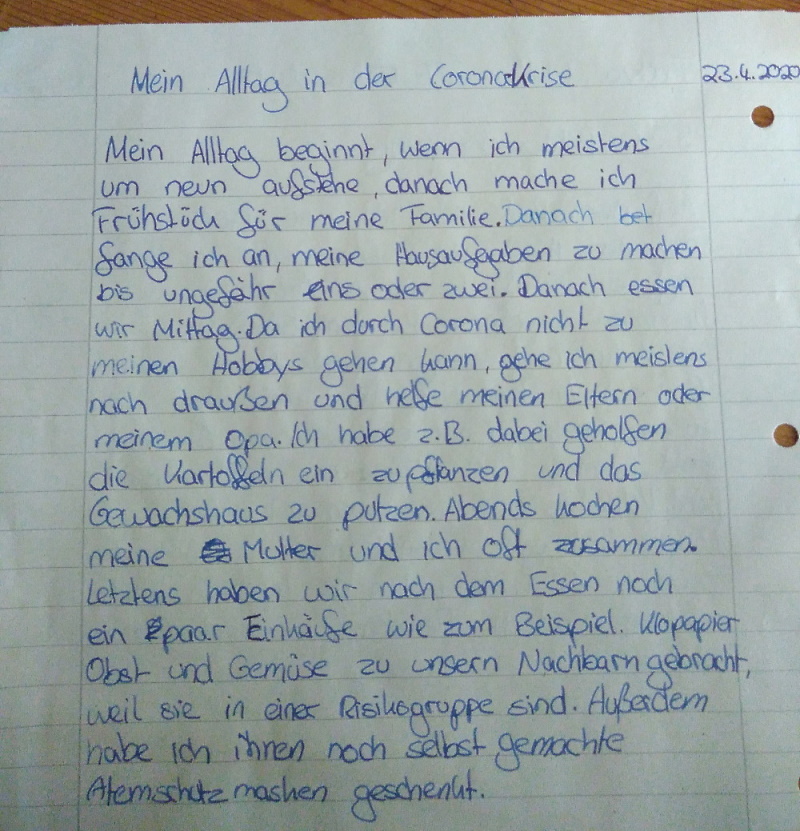 Mein Alltag in der Coronakrise 23.4.2020
Mein Alltag beginnt, wenn ich meistens
um neun aufstehe, danach mache ich
Frühstück für meine Familie. Danach bet
fange ich an, meine Hausaufgaben zu machen
bis ungefähr eins oder zwei. Danach essen
wir Mittag. Da ich durch Corona nicht zu
meinen Hobbys gehen kann, gehe ich meistens
nach draußen und helfe meinen Eltern oder
meinem Opa. Ich habe z.B. dabei geholfen
die Kartoffeln ein zu pflanzen und das
Gewächshaus zu putzen. Abends kochen
meine Mutter und ich oft zusammen.
Letztens haben wir nach dem Essen noch
ein paar Einkäufe wie zum Beispiel. Klopapier
Obst und Gemüse zu unsern Nachbarn gebracht,
weil sie in einer Risikogruppe sind. Außerdem
habe ich ihnen noch selbst gemachte
Atemschutzmasken geschenkt.